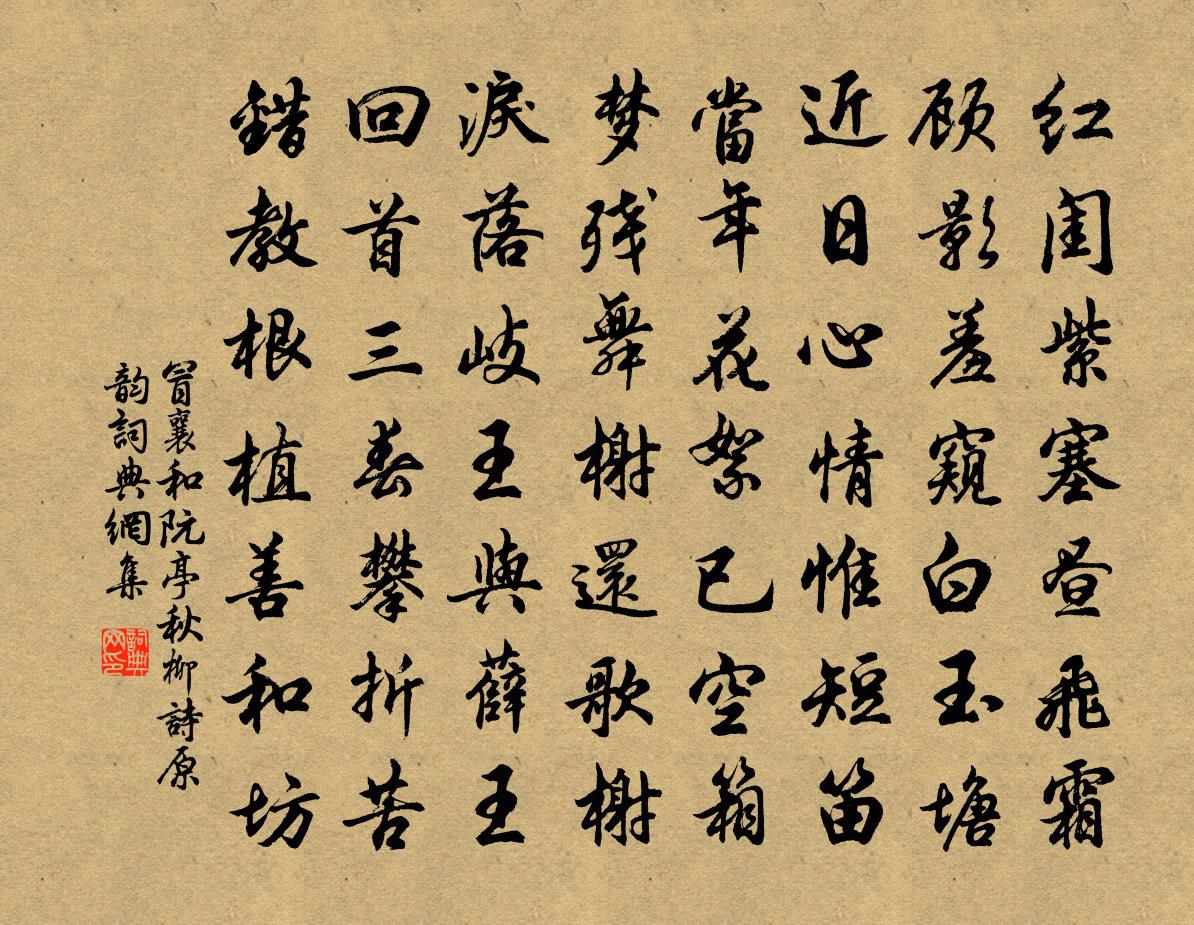 红闺紫塞昼飛霜
顾影羞窺白玉塘
近日心情惟短笛
當年花絮已空箱
梦残舞榭還歌榭
淚落岐王與薛王
回首三春攀折苦
錯教根植善和坊
冒襄和阮亭秋柳詩原
韵詞典網集
詞典
网印